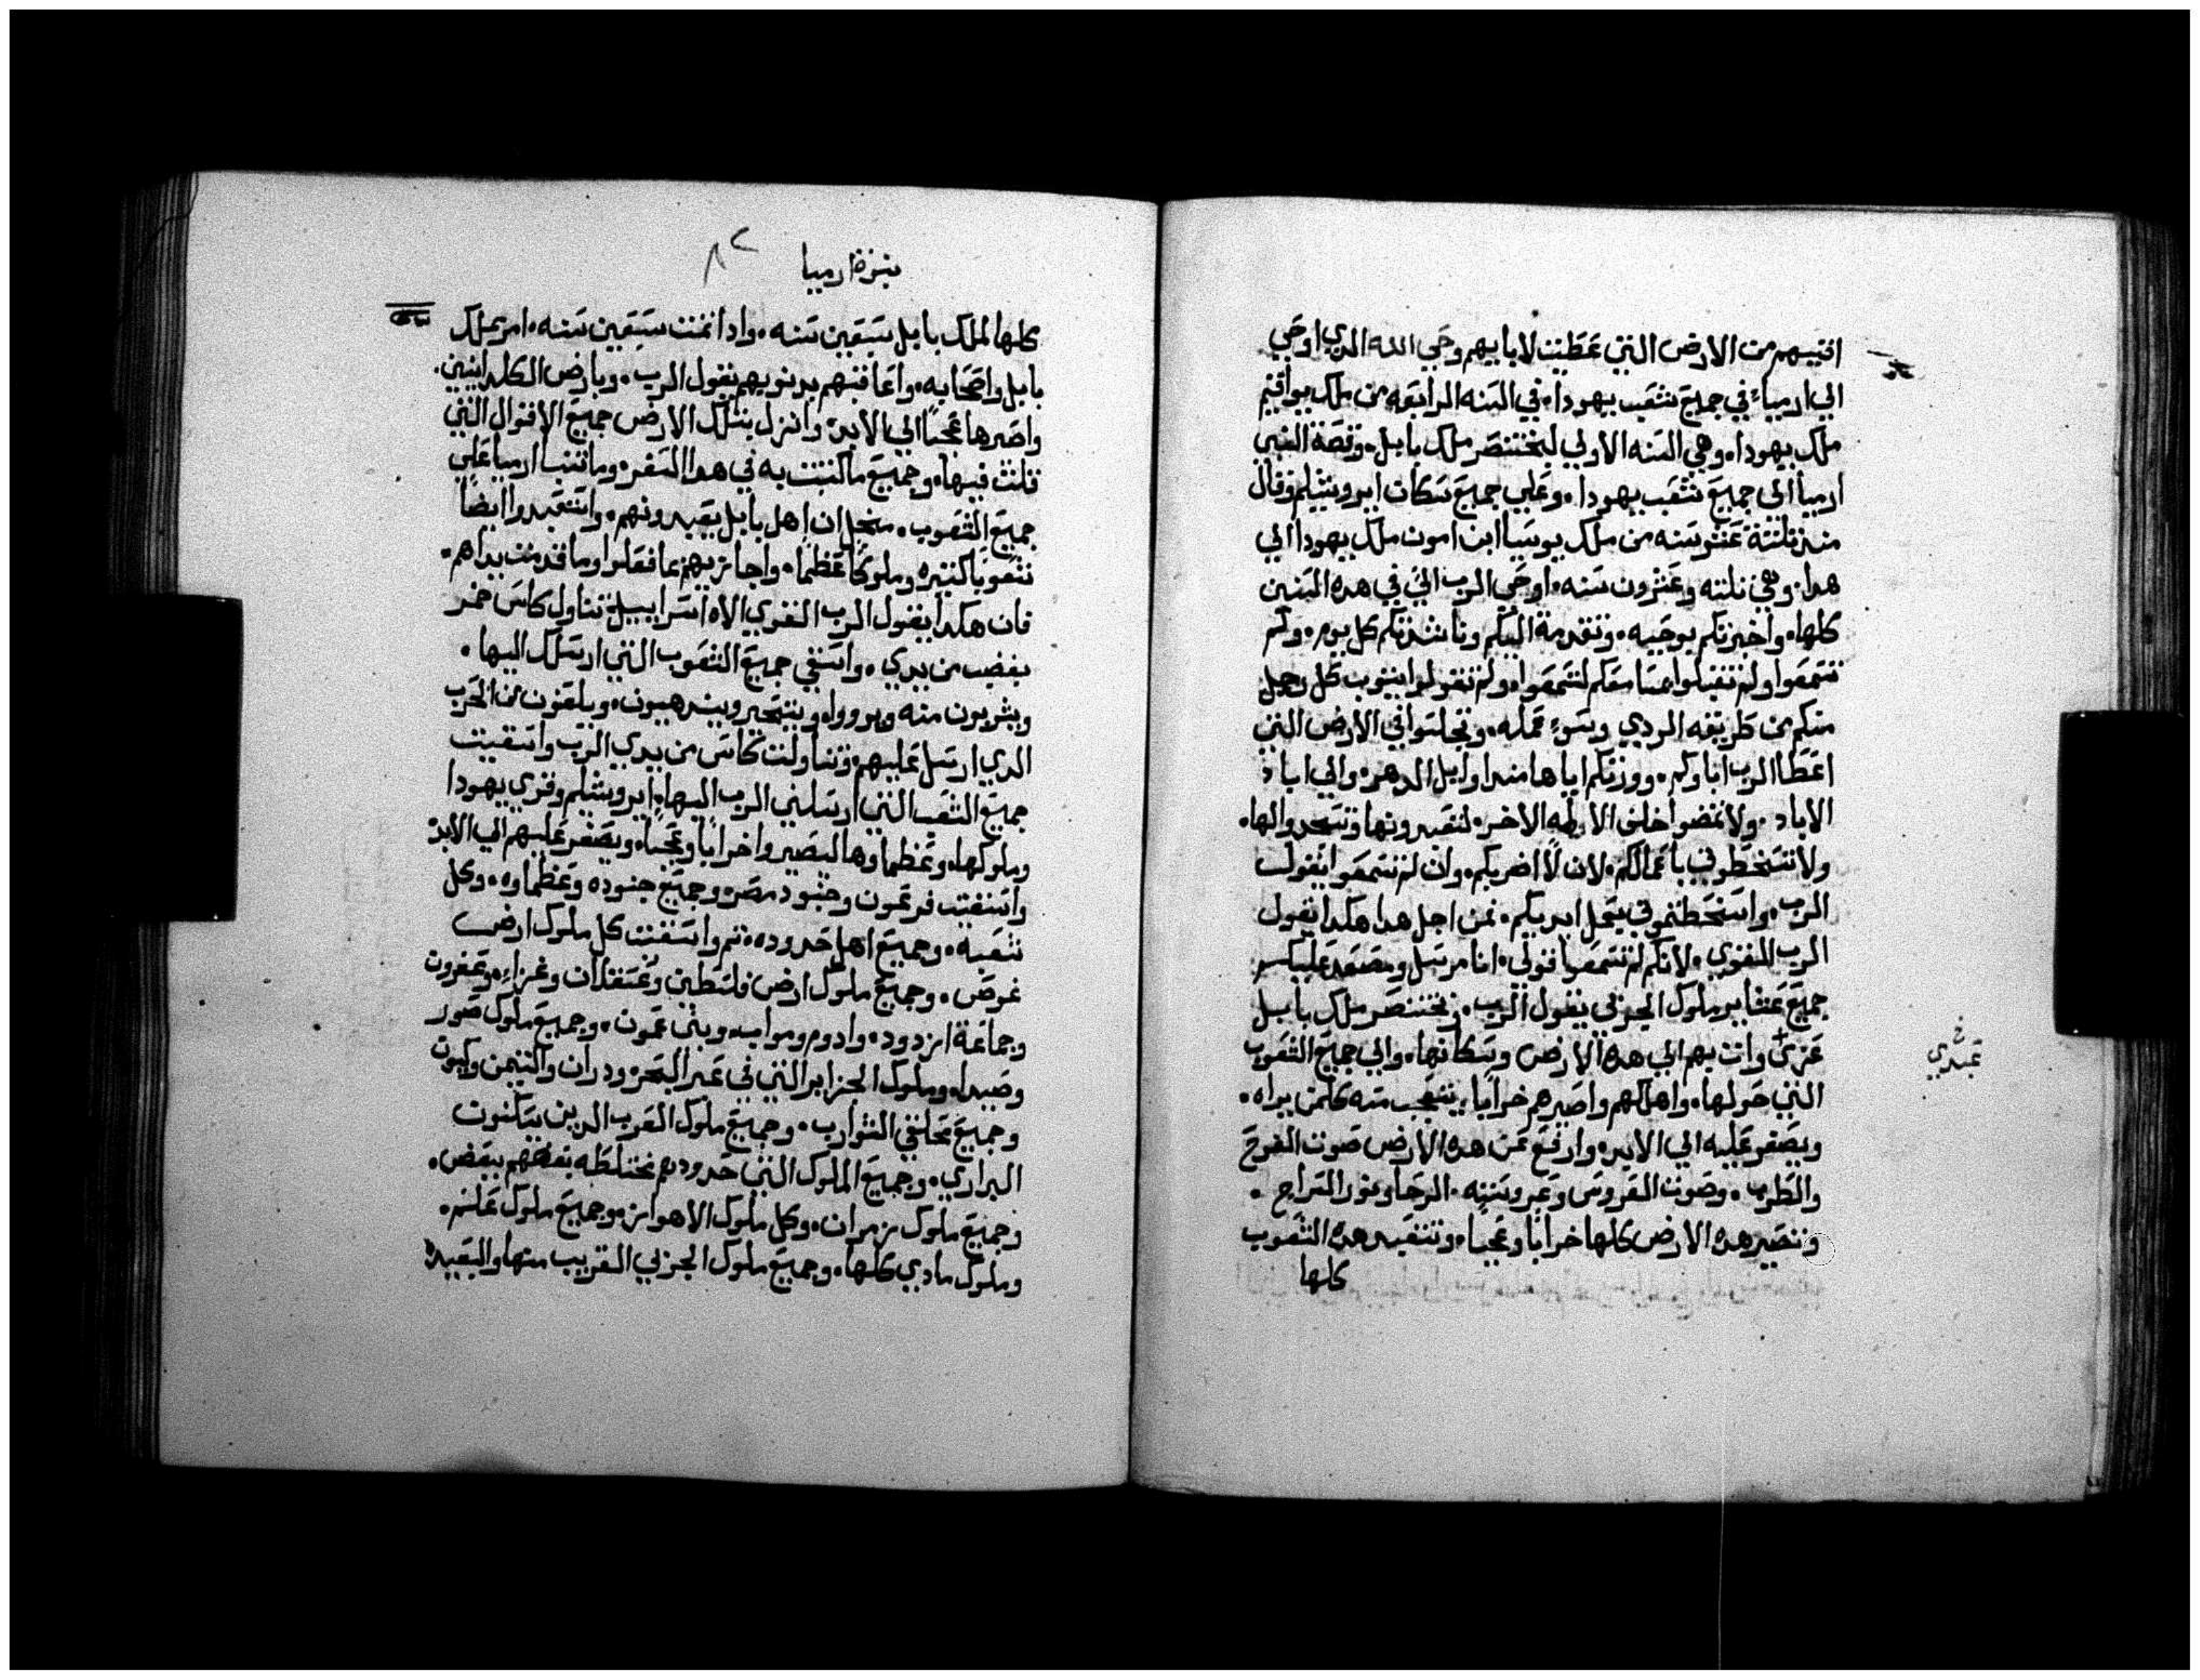 افنيهم من الارض التي عطيت لابايهم وحي الله الدي اوحي
الي ارميا في جميع شعب يهودا في السنه الرابعه من ملك يواقيم
ملك يهودا وهي السنه الاولي لبختنصر ملك بابل وقصة النبي
ارميا الي جميع شعب يهودا وعلي جميع سكان ايروشليم وقال
منذ تلتة عشر سنه من ملك يوسيا ابن امون ملك يهودا الي
هدا وهي تلته وعشرون سنه اوحي الرب الي في هده السنين
كلها واخبرتكم بوحيه وتقدمة اليكم وناشدتكم كل يوم ولم
تسمعوا ولم تقبلوا مسامعكم لتسمعوا ولم تقولوا يتوب كل رجل
منكم من طريقه الردي وسوء عمله وتجلسوا في الارض التي
اعطا الرب اباوكم وورتكم اياها مند اوايل الدهر والي اباد
الاباد ولا تمضوا خلف الالهه الاخر لتعبدونها وتسجدوا لها
ولا تسخطوني باعمالكم لان لا اضربكم وان لم تسمعوا يقول
الرب واسخطتموني بعمل ايديكم فمن اجل هدا هكدا يقول
الرب القوي لانكم لم تسمعوا قولي انا مرسل ومصعد عليكم
جميع عشاير ملوك الجربي يقول الرب وبختنصر ملك بابل
عبدي واتي بهم الي هده الارض وسكانها والي جميع الشعوب
التي حولها واهلكهم واصيرهم خرابا يتعجب منه كلمن يراه
ويصفر عليه الي الابد وارفع عن هده الارض صوت الفرح
والطرب وصوت العروس وعروسته الرحا ونور السراج
وتصير هده الارض كلها خرابا وعجبا وتتعبد هده الشعوب
كلها
عبدي
نبوة ارميا ٨٢
كلها لملك بابل سبعين سنه وادا تمت سبعين سنه امر بملك
بابل واصحابه واعاقبهم بدنوبهم يقول الرب وبارض الكلدانيين
واصيرها عجبا الي الابد وانزل بتلك الارض جميع الاقوال التي
قلت فيها وجميع ما كتبت به في هدا السفر وما تنبا ارميا علي
جميع الشعوب من اجل ان اهل بابل يعبدونهم واستعبدوا ايضا
شعوبا كتيره وملوكا عظما واجازيهم بما فعلوا وما قدمت يداهم
فان هكدا يقول الرب القوي الاه اسراييل تناول كاس خمر
بغضب من يدي واسقي جميع الشعوب التي ارسلك اليها
ويشربون منه ويرووا ويتحير وينرهبون ويلقون من الحرب
الدي ارسل عليهم وتناولت كاس من يدي الرب واسقيت
جميع الشعب التي ارسلني الرب اليها ايروشليم وقري يهودا
وملوكها وعظماوها ليصيروا خرابا وعجبا ويصفر عليهم الي الابد
واسقيت فرعون وجنود مصر وجميع جنوده وعظماوه وكل
شعبه وجميع اهل حدوده تم واسقيت كل ملوك ارض
غوص وجميع ملوك ارض فلسطين وعسقلان وغزاء وعقرون
وجماعة ازدود وادوم ومواب وبني عمون وجميع ملوك صور
وصيدا وملوك الجزاير التي في عبر البحر ودران والتيمن وكبوت
وجميع محلقي الشوارب وجميع ملوك العرب الدين يسكنون
البراري وجميع الملوك التي حدودهم مختلطه بعضهم ببعض
وجميع ملوك زمران وكل ملوك الاهواز وجميع ملوك علم
وملوك مادي كلها وجميع ملوك الجربي القريب منها والبعيد